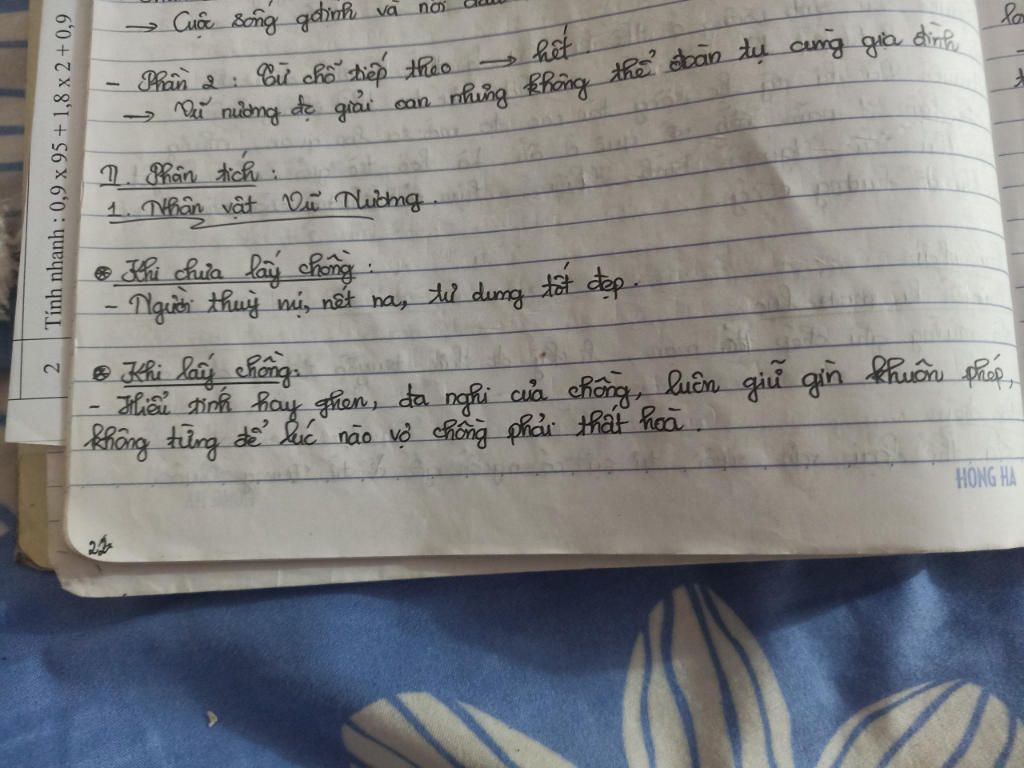 → Cuộc sống gđình và nỗi
- Phần 2 : Từ chỗ tiếp theo → hết
→ Vũ nương đc giải oan nhưng không thể đoàn tụ cùng gia đình
II. Phân tích :
1. Nhân vật Vũ Nương.
⊛ Khi chưa lấy chồng :
- Người thuỳ mị, nết na, tư dung tốt đẹp.
⊛ Khi lấy chồng:
- Hiểu tính hay ghen, đa nghi của chồng, luôn giữ gìn khuôn phép,
không từng để lúc nào vợ chồng phải thất hoà.
HỒNG HÀ
22
2 Tính nhanh : 0,9 x 95 + 1,8 x 2 + 0,9